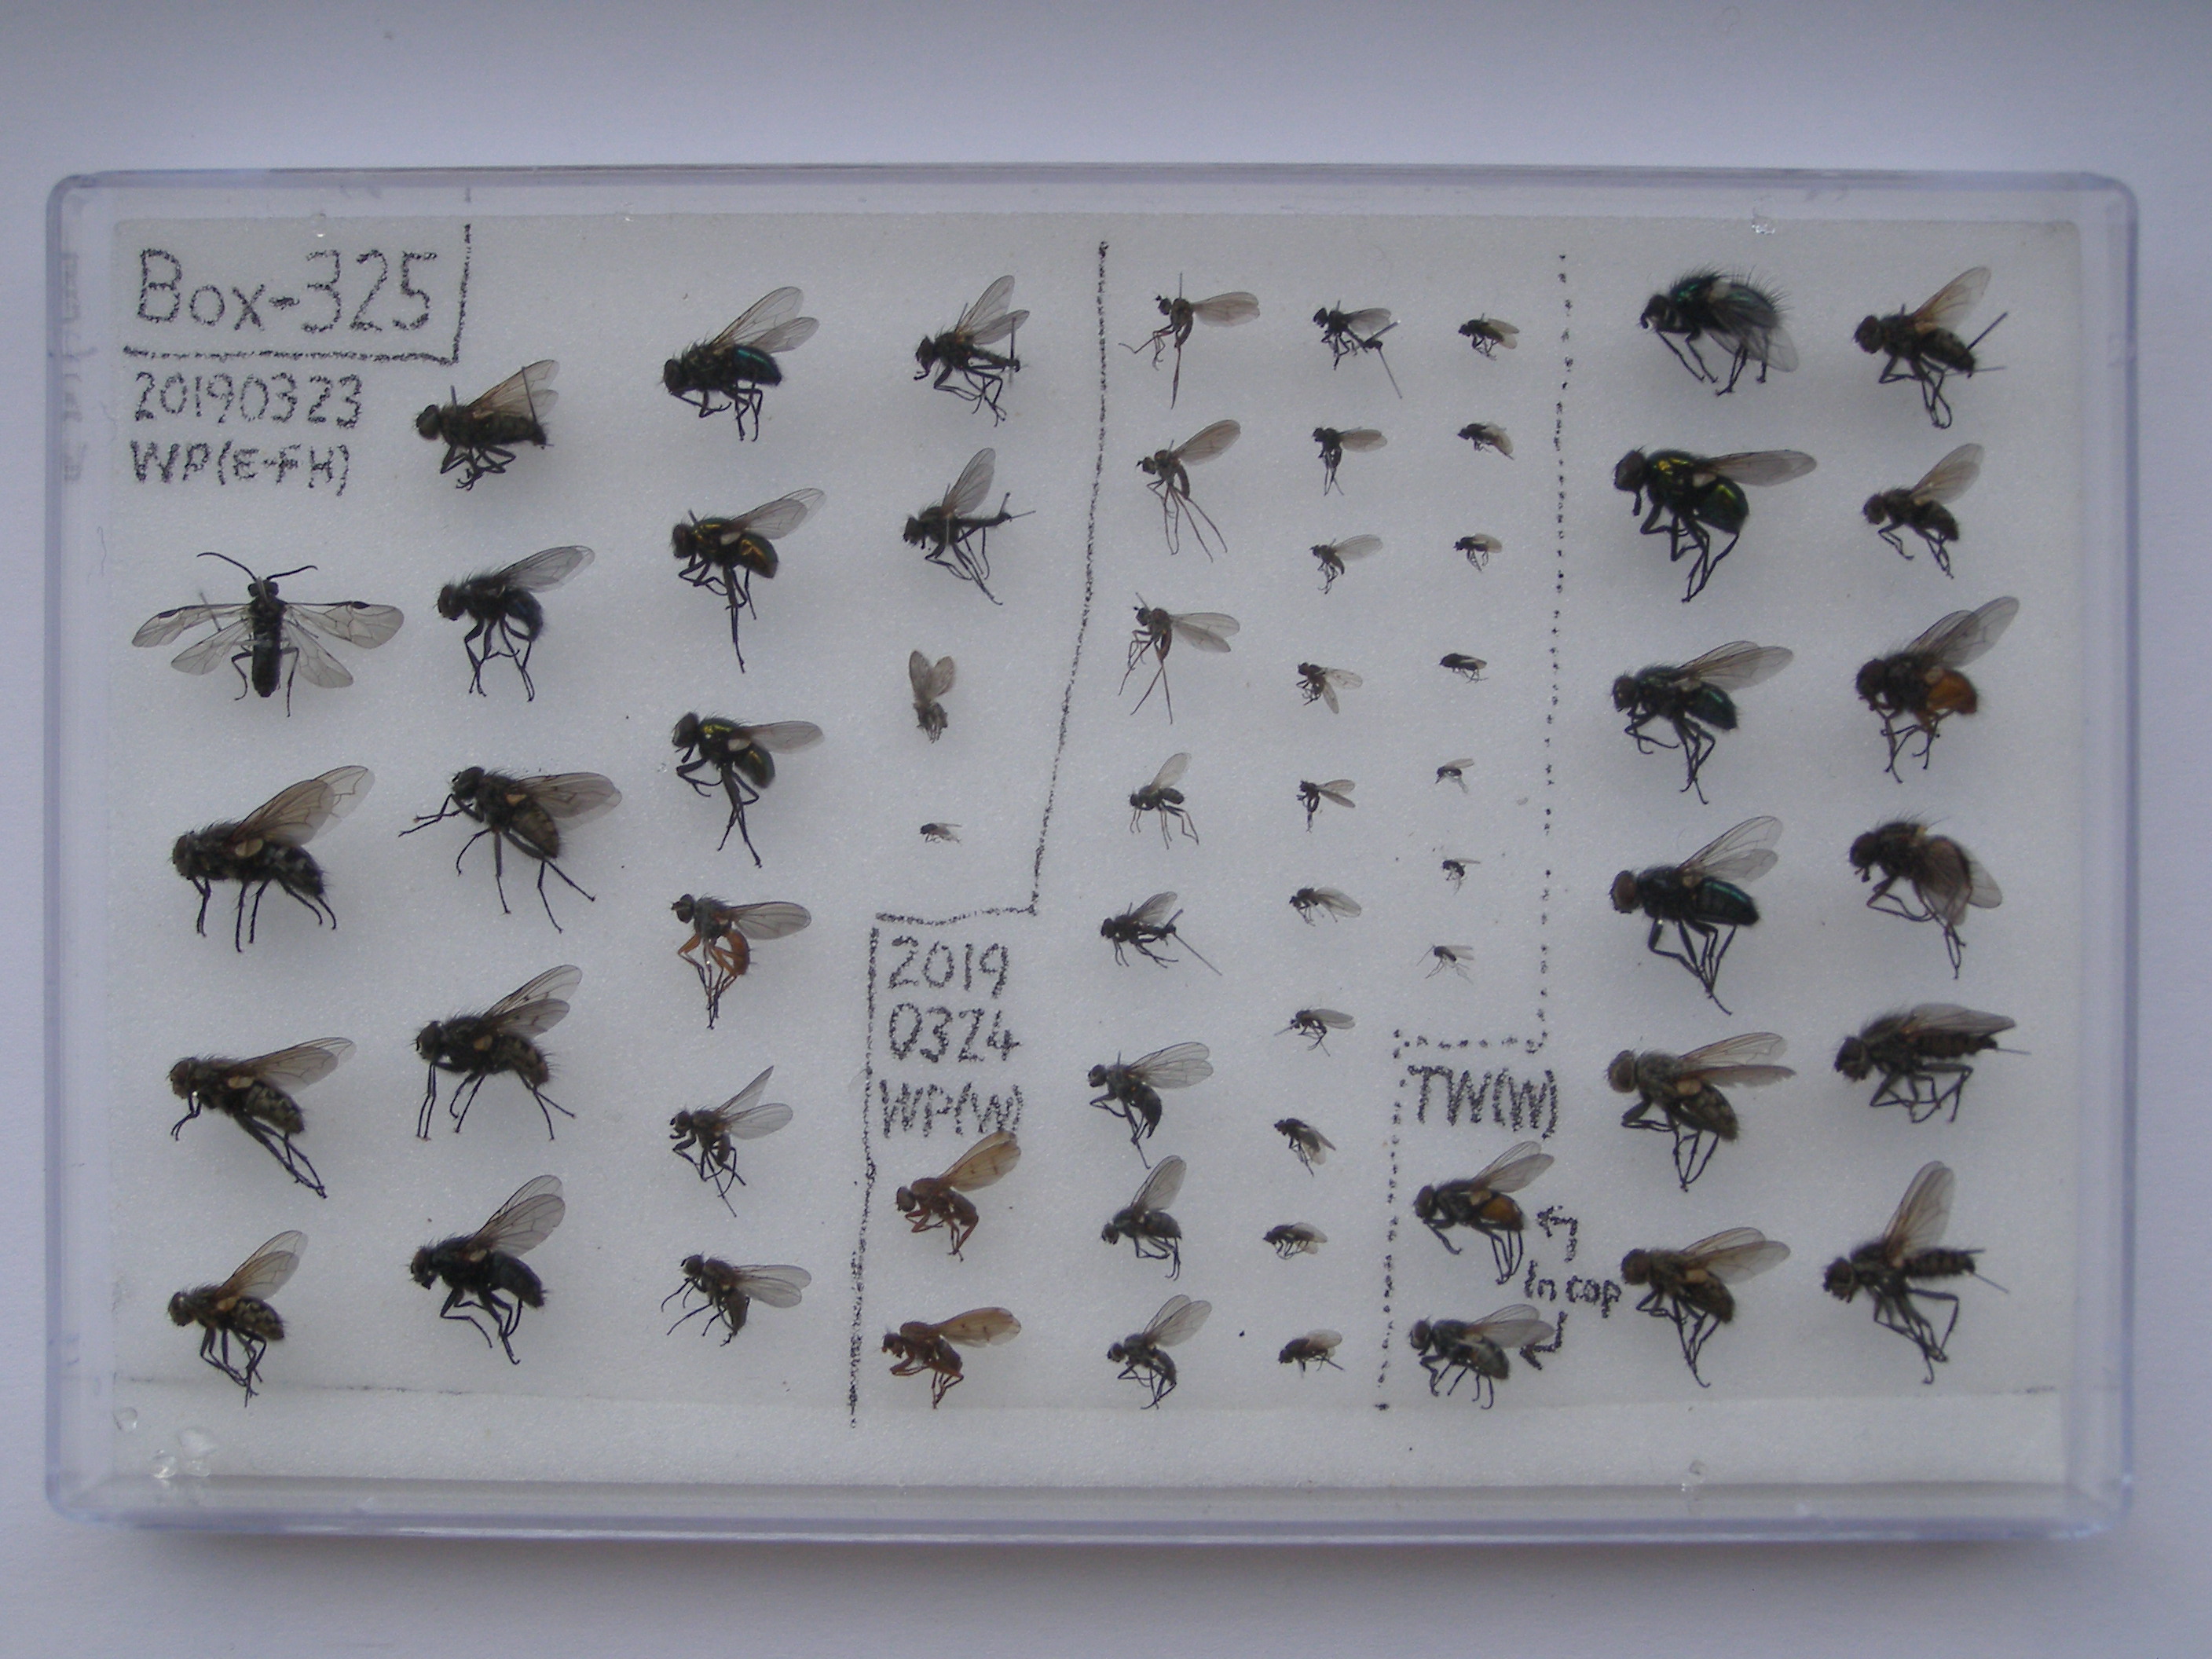 Box-325
20190323
WP(E-FH)
2019
0324
WP(W)
TW(W)
in cop